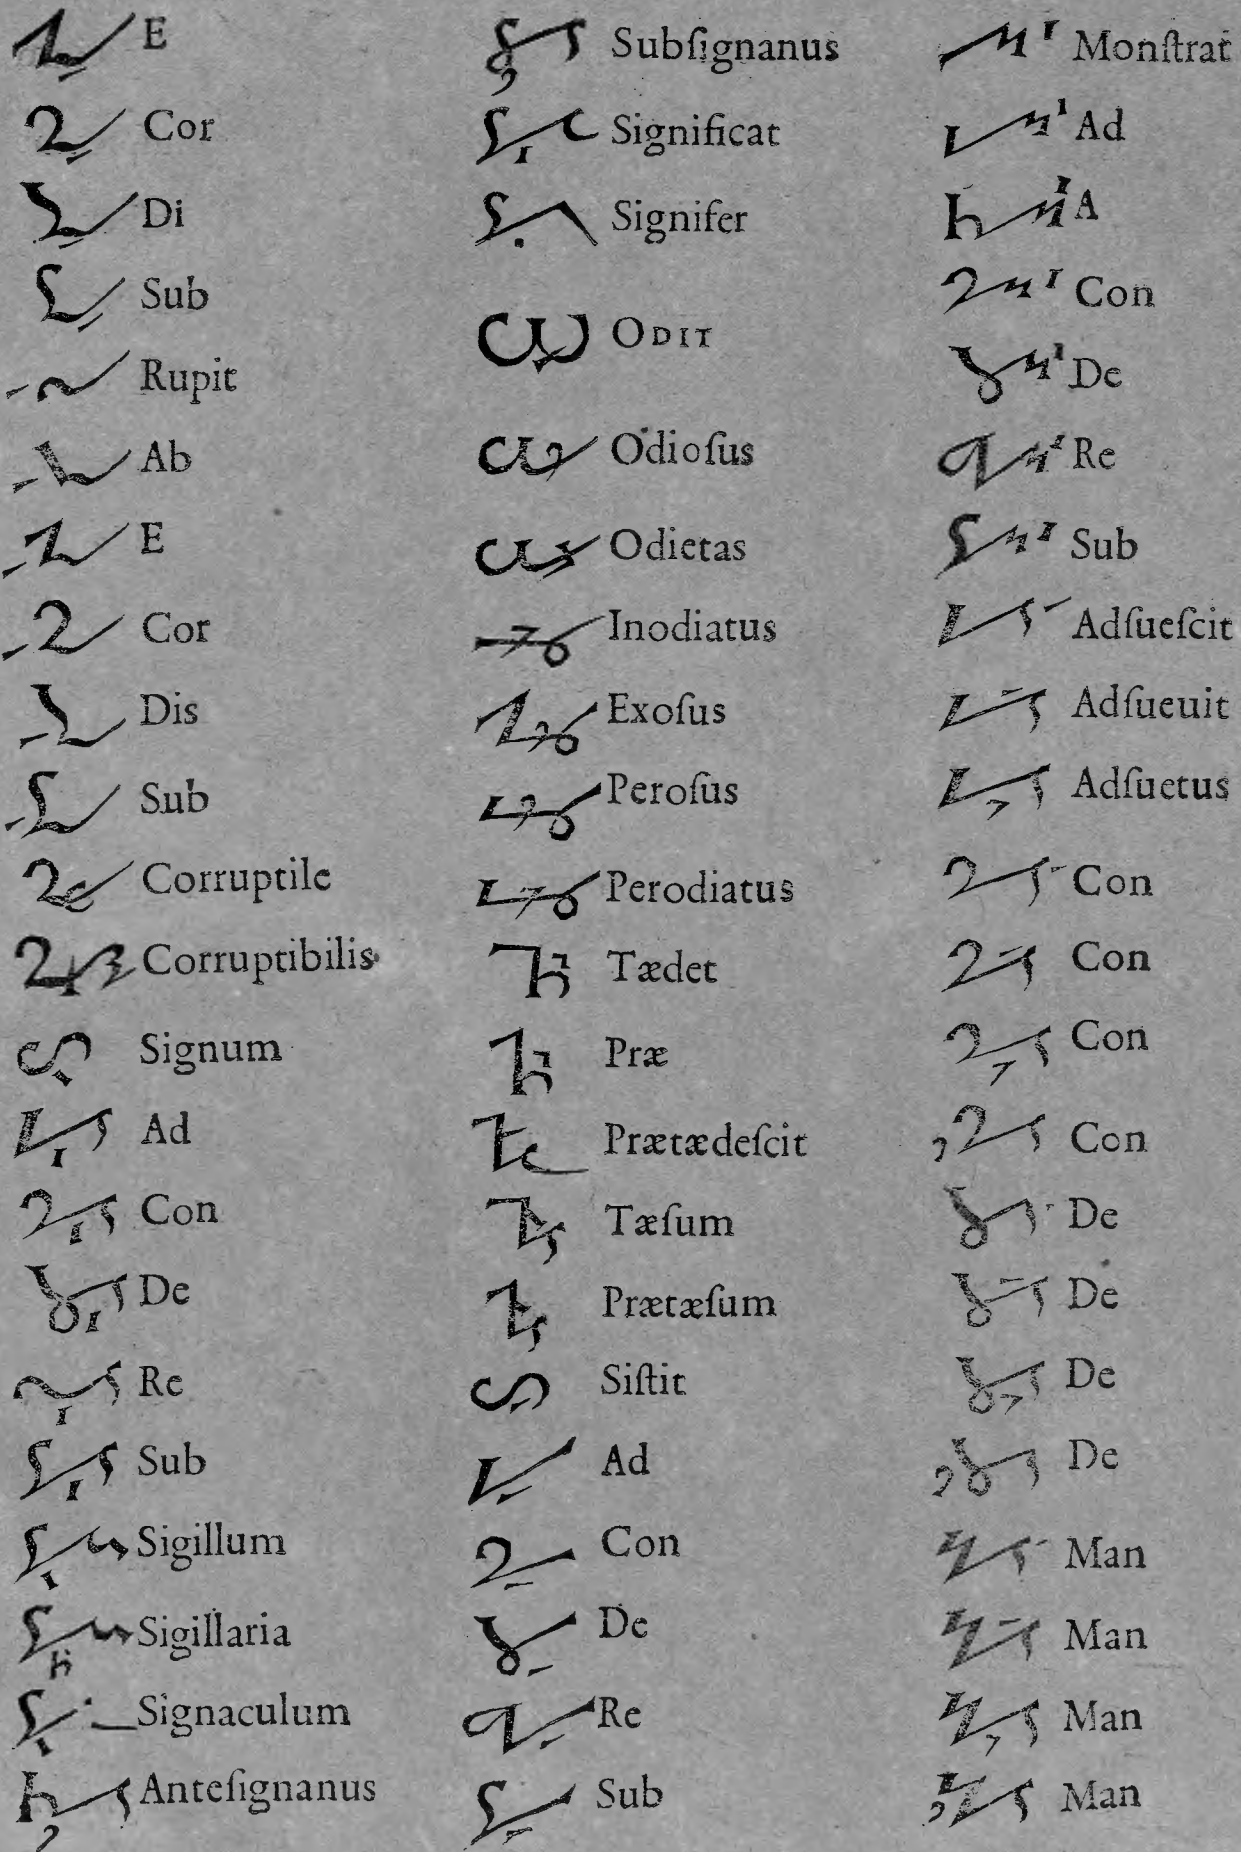 E
Cor
Di
Sub
Rupit
Ab
E
Cor
Dis
Sub
Corruptile
Corruptibilis
Signum
Ad
Con
De
Re
Sub
Sigillum
Sigillaria
Signaculum
Anteſignanus
Subſignanus
Significat
Signifer
ODIT
Odioſus
Odietas
Inodiatus
Exoſus
Peroſus
Perodiatus
Tædet
Præ
Prætædeſcit
Tæſum
Prætæſum
Siſtit
Ad
Con
De
Re
Sub
Monſtrat
Ad
A
Con
De
Re
Sub
Adſueſcit
Adſueuit
Adſuetus
Con
Con
Con
Con
De
De
De
De
Man
Man
Man
Man